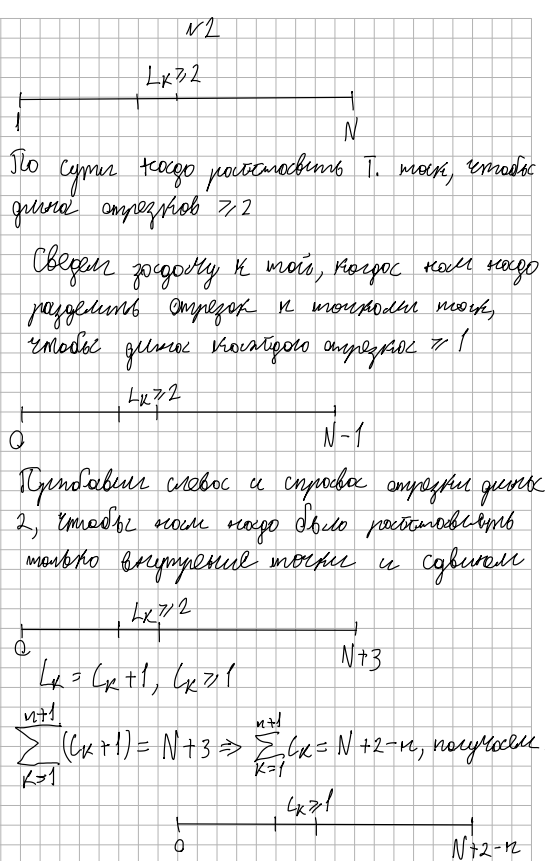 №2
Lк ≥ 2
1
N
По сути надо расставить т. так, чтобы
длина отрезков ≥ 2
Сведем задачу к той, когда нам надо
разделить отрезок n точками так,
чтобы длина каждого отрезка ≥ 1
Lк ≥ 2
0
N-1
Прибавим слева и справа отрезки длины
2, чтобы нам надо было расставлять
только внутренние точки и сдвигаем
Lк ≥ 2
0
N+3
Lк = lк + 1, lк ≥ 1
∑_{к=1}^{n+1} (lк + 1) = N+3 ⇒ ∑_{к=1}^{n+1} lк = N+2-n, получаем
lк ≥ 1
0
N+2-n